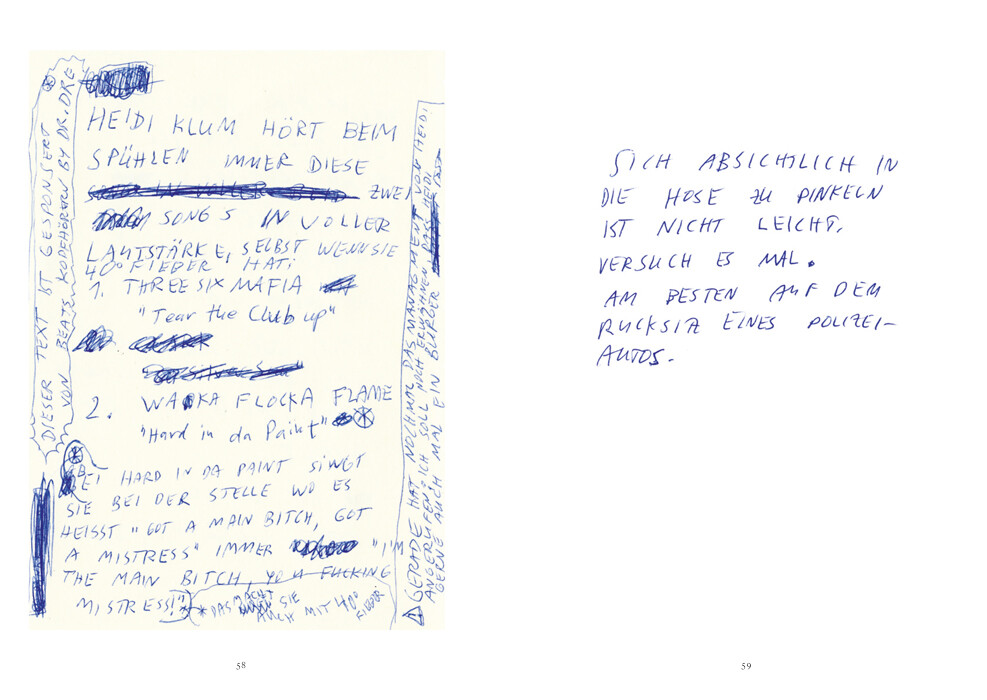 HEIDI KLUM HÖRT BEIM
SPÜHLEN IMMER DIESE
ZWEI
SONGS IN VOLLER
LAUTSTÄRKE, SELBST WENN SIE
40° FIEBER HAT:
1. THREE SIX MAFIA
"Tear the Club up"
2. WAKA FLOCKA FLAME
"Hard in da Paint" *
* BEI HARD IN DA PAINT SINGT
SIE BEI DER STELLE WO ES
HEISST "GOT A MAIN BITCH, GOT
A MISTRESS" IMMER "I'M
THE MAIN BITCH, YOU FUCKING
MISTRESS!"
* DAS MACHT
SIE
AUCH MIT 40°
FIEBER
* DIESER TEXT IST GESPONSERT
VON BEATS KOPFHÖRERN BY DR. DRE
GERADE HAT NOCHMAL DAS MANAGMENT VON HEIDI
ANGERUFEN, ICH SOLL NOCH ERWÄHNEN, DASS HEIDI
GERNE AUCH MAL EIN BURGER ISST
58
SICH ABSICHTLICH IN
DIE HOSE ZU PINKELN
IST NICHT LEICHT.
VERSUCH ES MAL.
AM BESTEN AUF DEM
RÜCKSITZ EINES POLIZEI-
AUTOS.
59